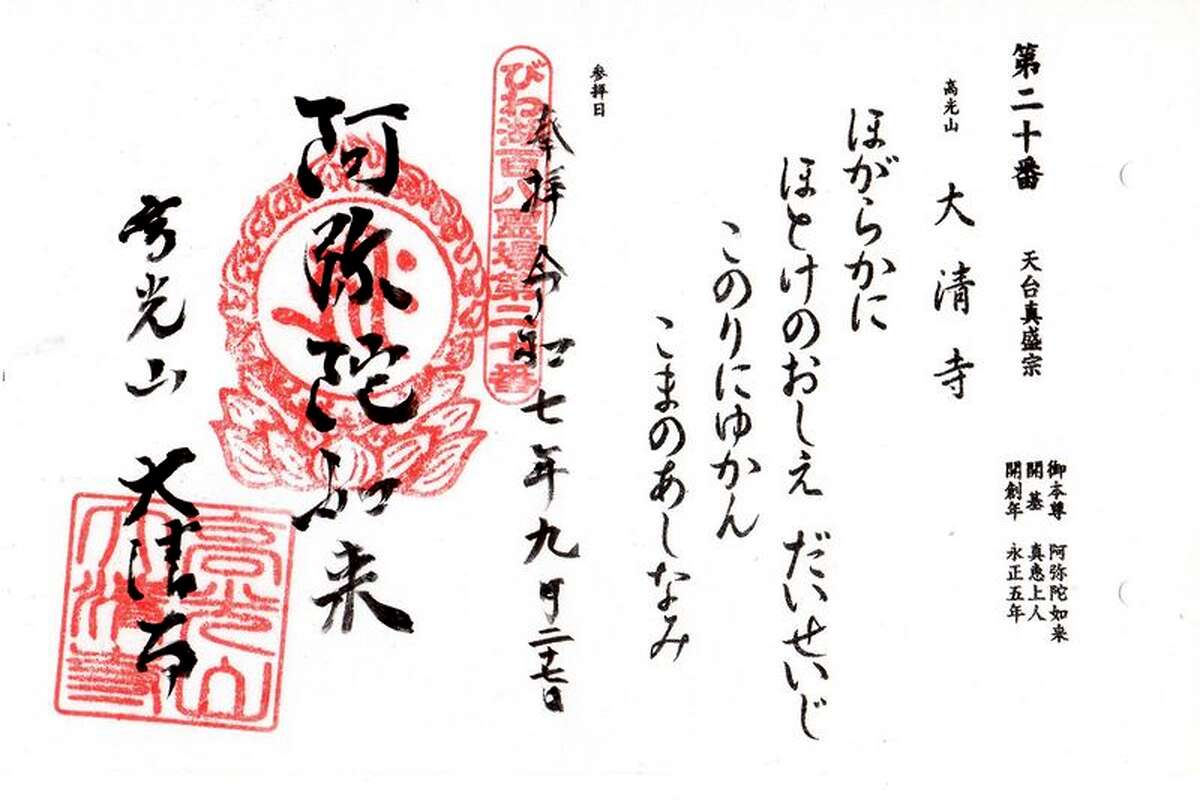 第二十番 天台真盛宗
御本尊 阿弥陀如来
開基 真恵上人
開創年 永正五年
高光山 大清寺
ほがらかに
ほとけのおしえ だいせいじ
このりにゆかん
こまのあしなみ
参拝日
びわ湖百八霊場第二十番
奉拝 令和七年九月二十七日
阿弥陀如来
高光山 大清寺
高光山
大清寺